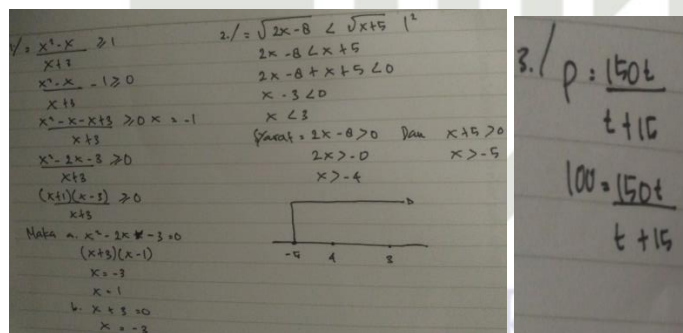 1/ = x²-x / x+3 ≥ 1
x²-x / x+3 - 1 ≥ 0
x²-x-x+3 / x+3 ≥ 0 x = -1
x²-2x-3 / x+3 ≥ 0
(x+1)(x-3) / x+3 ≥ 0
Maka a. x²-2x-3=0
(x+3)(x-1)
x = -3
x = 1
b. x+3=0
x = -3
2./ = √2x-8 < √x+5 |²
2x-8 < x+5
2x-8+x+5 < 0
x-3 < 0
x < 3
Syarat = 2x-8 > 0 Dan x+5 > 0
2x > -0 x > -5
x > -4
-5 4 3
3./ p = 150t / t+15
100 = 150t / t+15